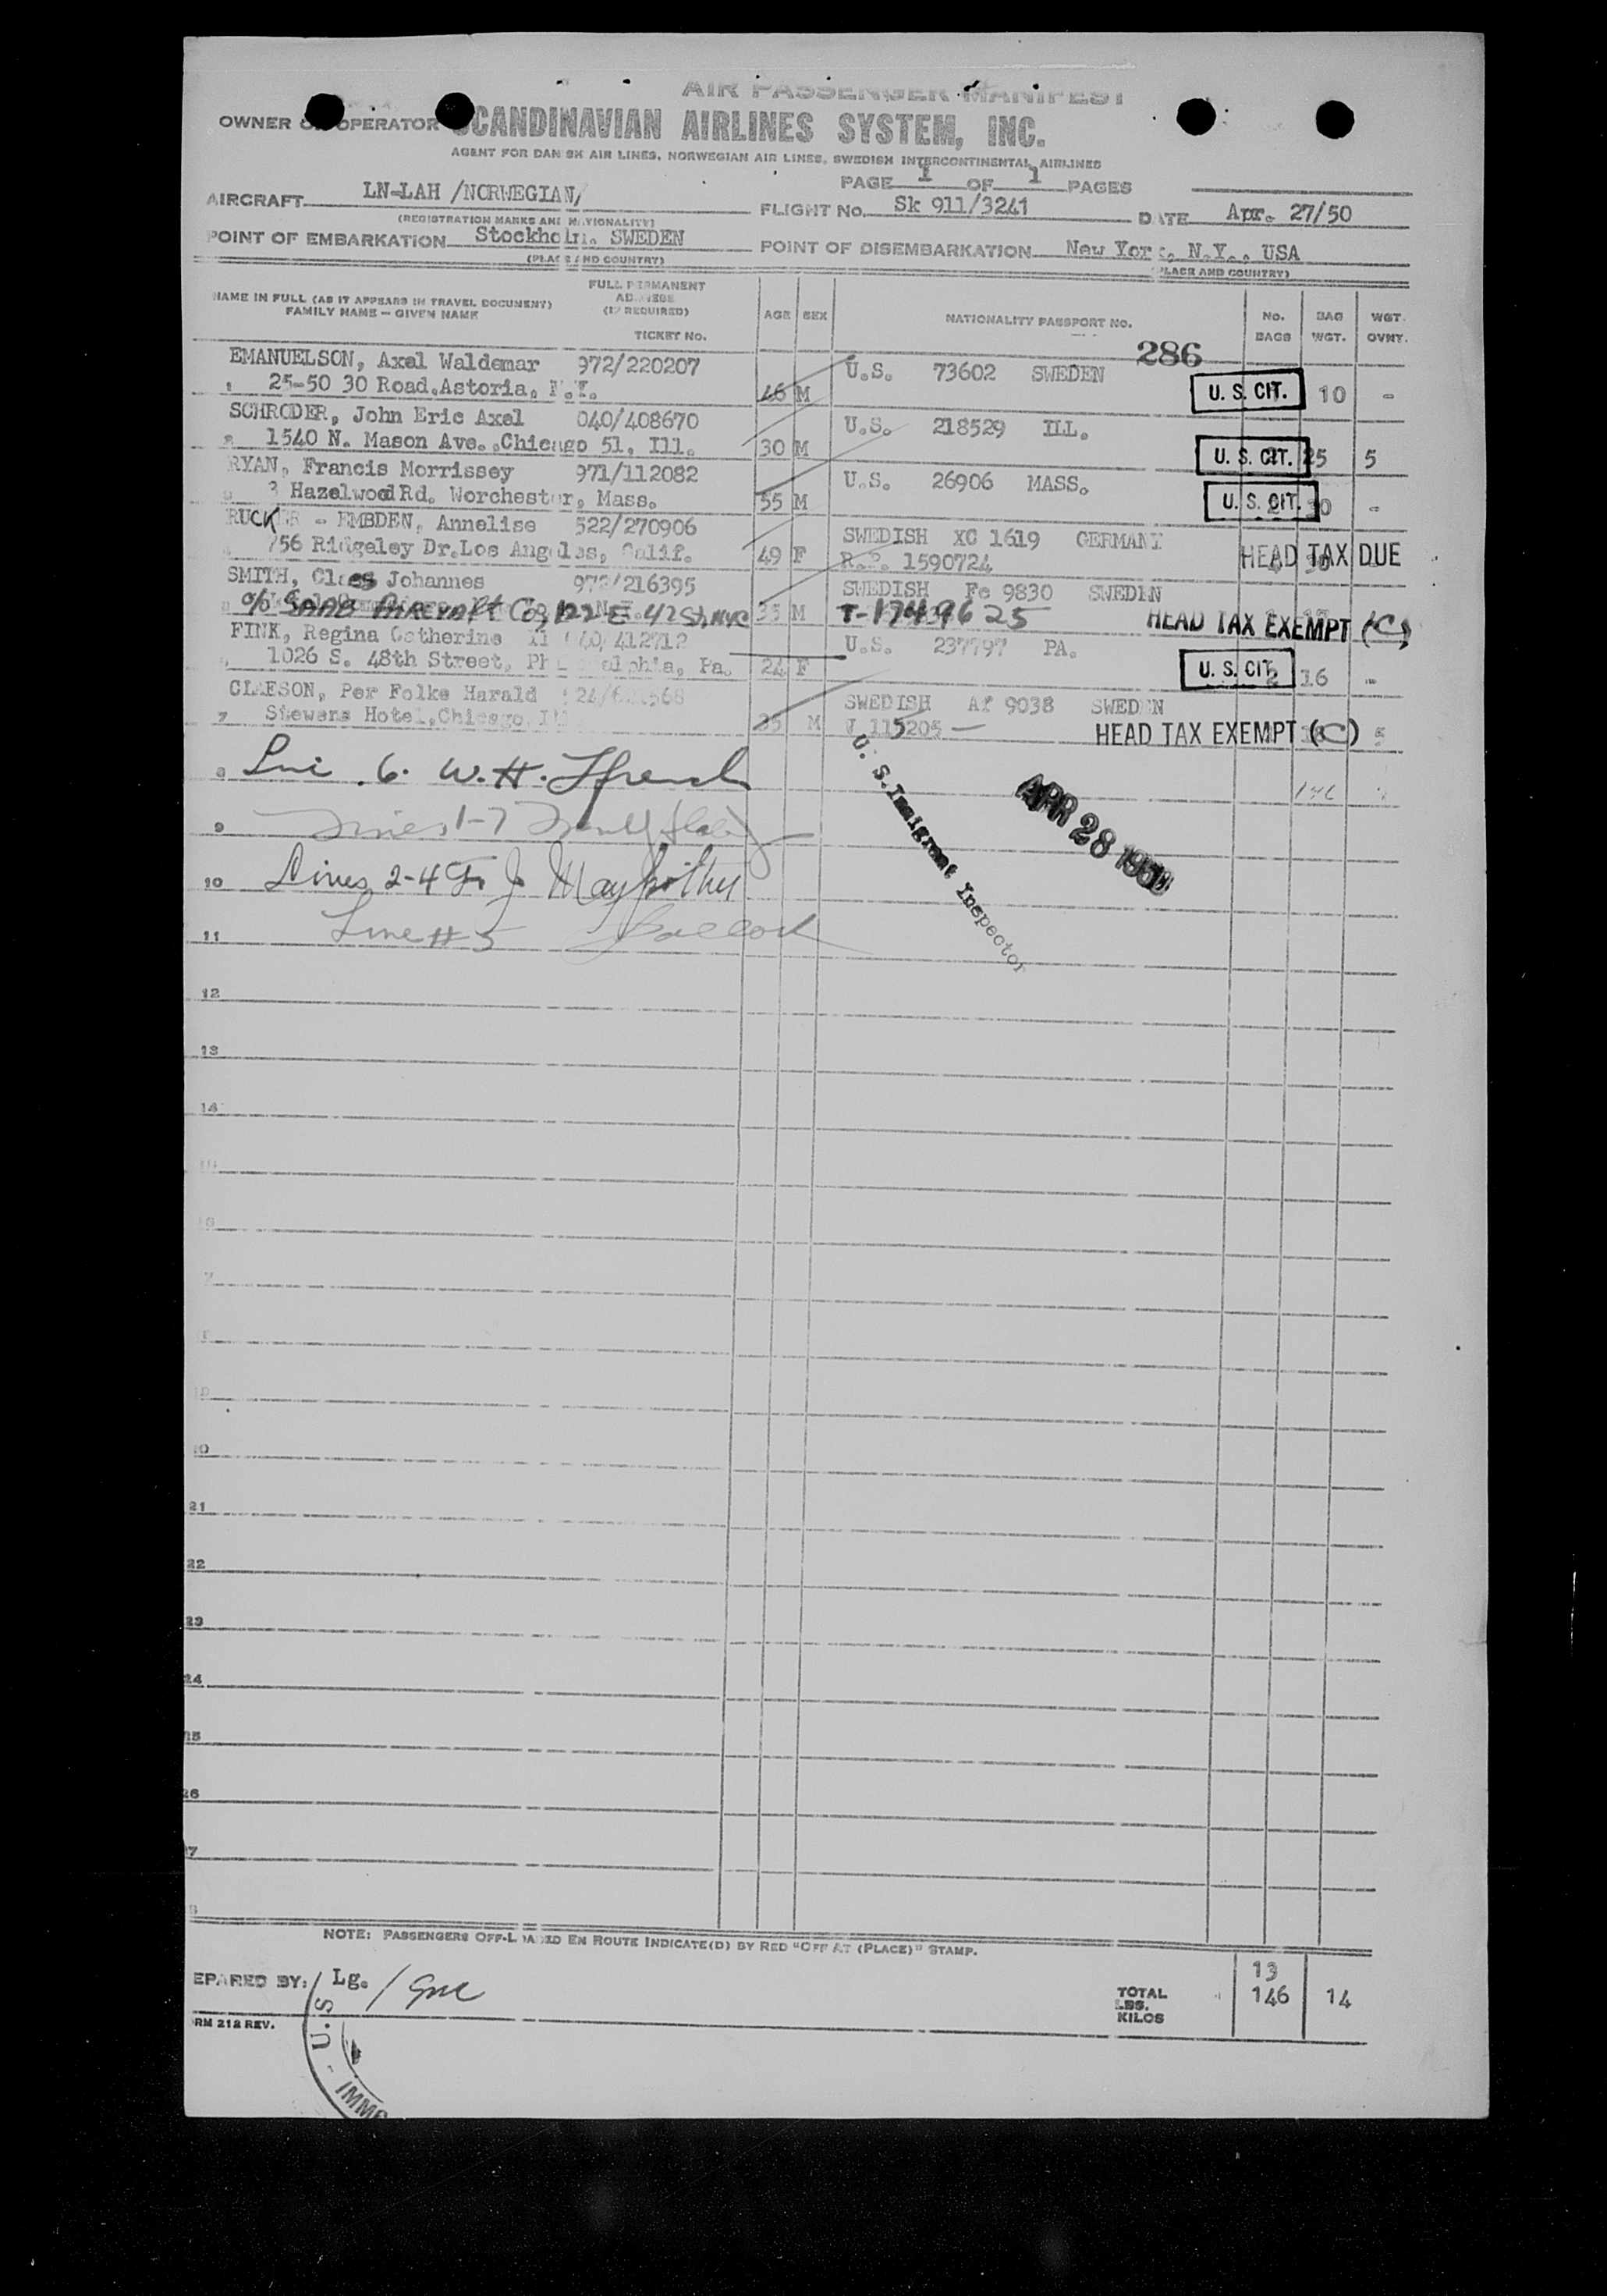 AIR PASSENGER MANIFEST
OWNER OR OPERATOR SCANDINAVIAN AIRLINES SYSTEM, INC.
AGENT FOR DANISH AIR LINES, NORWEGIAN AIR LINES, SWEDISH INTERCONTINENTAL AIRLINES
PAGE 1 OF 1 PAGES
AIRCRAFT LN-LAH /NORWEGIAN/ FLIGHT No. Sk 911/3241 DATE Apr. 27/50
(REGISTRATION MARKS AND NATIONALITY)
POINT OF EMBARKATION Stockholm. SWEDEN POINT OF DISEMBARKATION New York, N.Y., USA
(PLACE AND COUNTRY) (PLACE AND COUNTRY)
NAME IN FULL (AS IT APPEARS IN TRAVEL DOCUMENT) FAMILY NAME — GIVEN NAME FULL PERMANENT ADDRESS (IF REQUIRED) TICKET No. AGE SEX NATIONALITY PASSPORT NO. No. BAGS BAG WGT. WGT. OVHT.
286
EMANUELSON, Axel Waldemar 972/220207 U.S. 73602 SWEDEN
25-50 30 Road.Astoria, N.Y. 46 M U. S. CIT. 10 -
SCHRODER, John Eric Axel 040/408670 U.S. 218529 ILL.
1540 N. Mason Ave.,Chicago 51, Ill. 30 M U. S. CIT. 25 5
RYAN, Francis Morrissey 971/112082 U.S. 26906 MASS.
3 Hazelwood Rd. Worchester, Mass. 55 M U. S. CIT. -
RUCKER - EMBDEN, Annelise 522/270906 SWEDISH XC 1619 GERMANY
756 Ridgeley Dr.Los Angeles, Calif. 49 F R.P. 1590724 HEAD TAX DUE
SMITH, Claes Johannes 972/216395 SWEDISH Fe 9830 SWEDEN
% SAAB Aircraft Co, 122 E. 42 St, NYC 35 M T-1749625 HEAD TAX EXEMPT (C)
FINK, Regina Catherine U.S. 237797 PA.
1026 S. 48th Street, Philadelphia, Pa. 24 F U. S. CIT. 2 16 -
CLAESON, Per Folke Harald SWEDISH Af 9038 SWEDEN
7 Stewens Hotel,Chicago Ill 35 M V 115205 - HEAD TAX EXEMPT (C)
8 Line 6. W. H.
9 Lines 1-7
10 Lines 2-4
11 Line # 5
U. S. Immigrant Inspector
APR 28 1950
12
13
14
21
22
23
24
26
NOTE: PASSENGERS OFF-LOADED EN ROUTE INDICATE(D) BY RED "OFF AT (PLACE)" STAMP.
EPARED BY: Lg. /
13
TOTAL LBS. KILOS 146 14
RM 212 REV.
U.S. - IMM